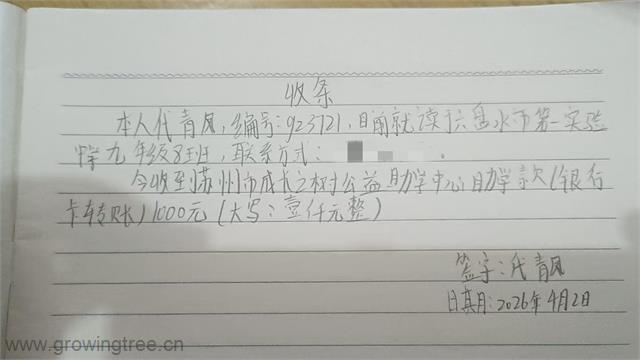 收条
本人代青风,编号:923721,目前就读于六盘水市第一实验
中学九年级8班,联系方式: .
今收到苏州市成长之树公益助学中心助学款(银行
卡转账)1000元(大写:壹仟元整)
签字:代青风
日期:2026年4月2日
www.growingtree.cn